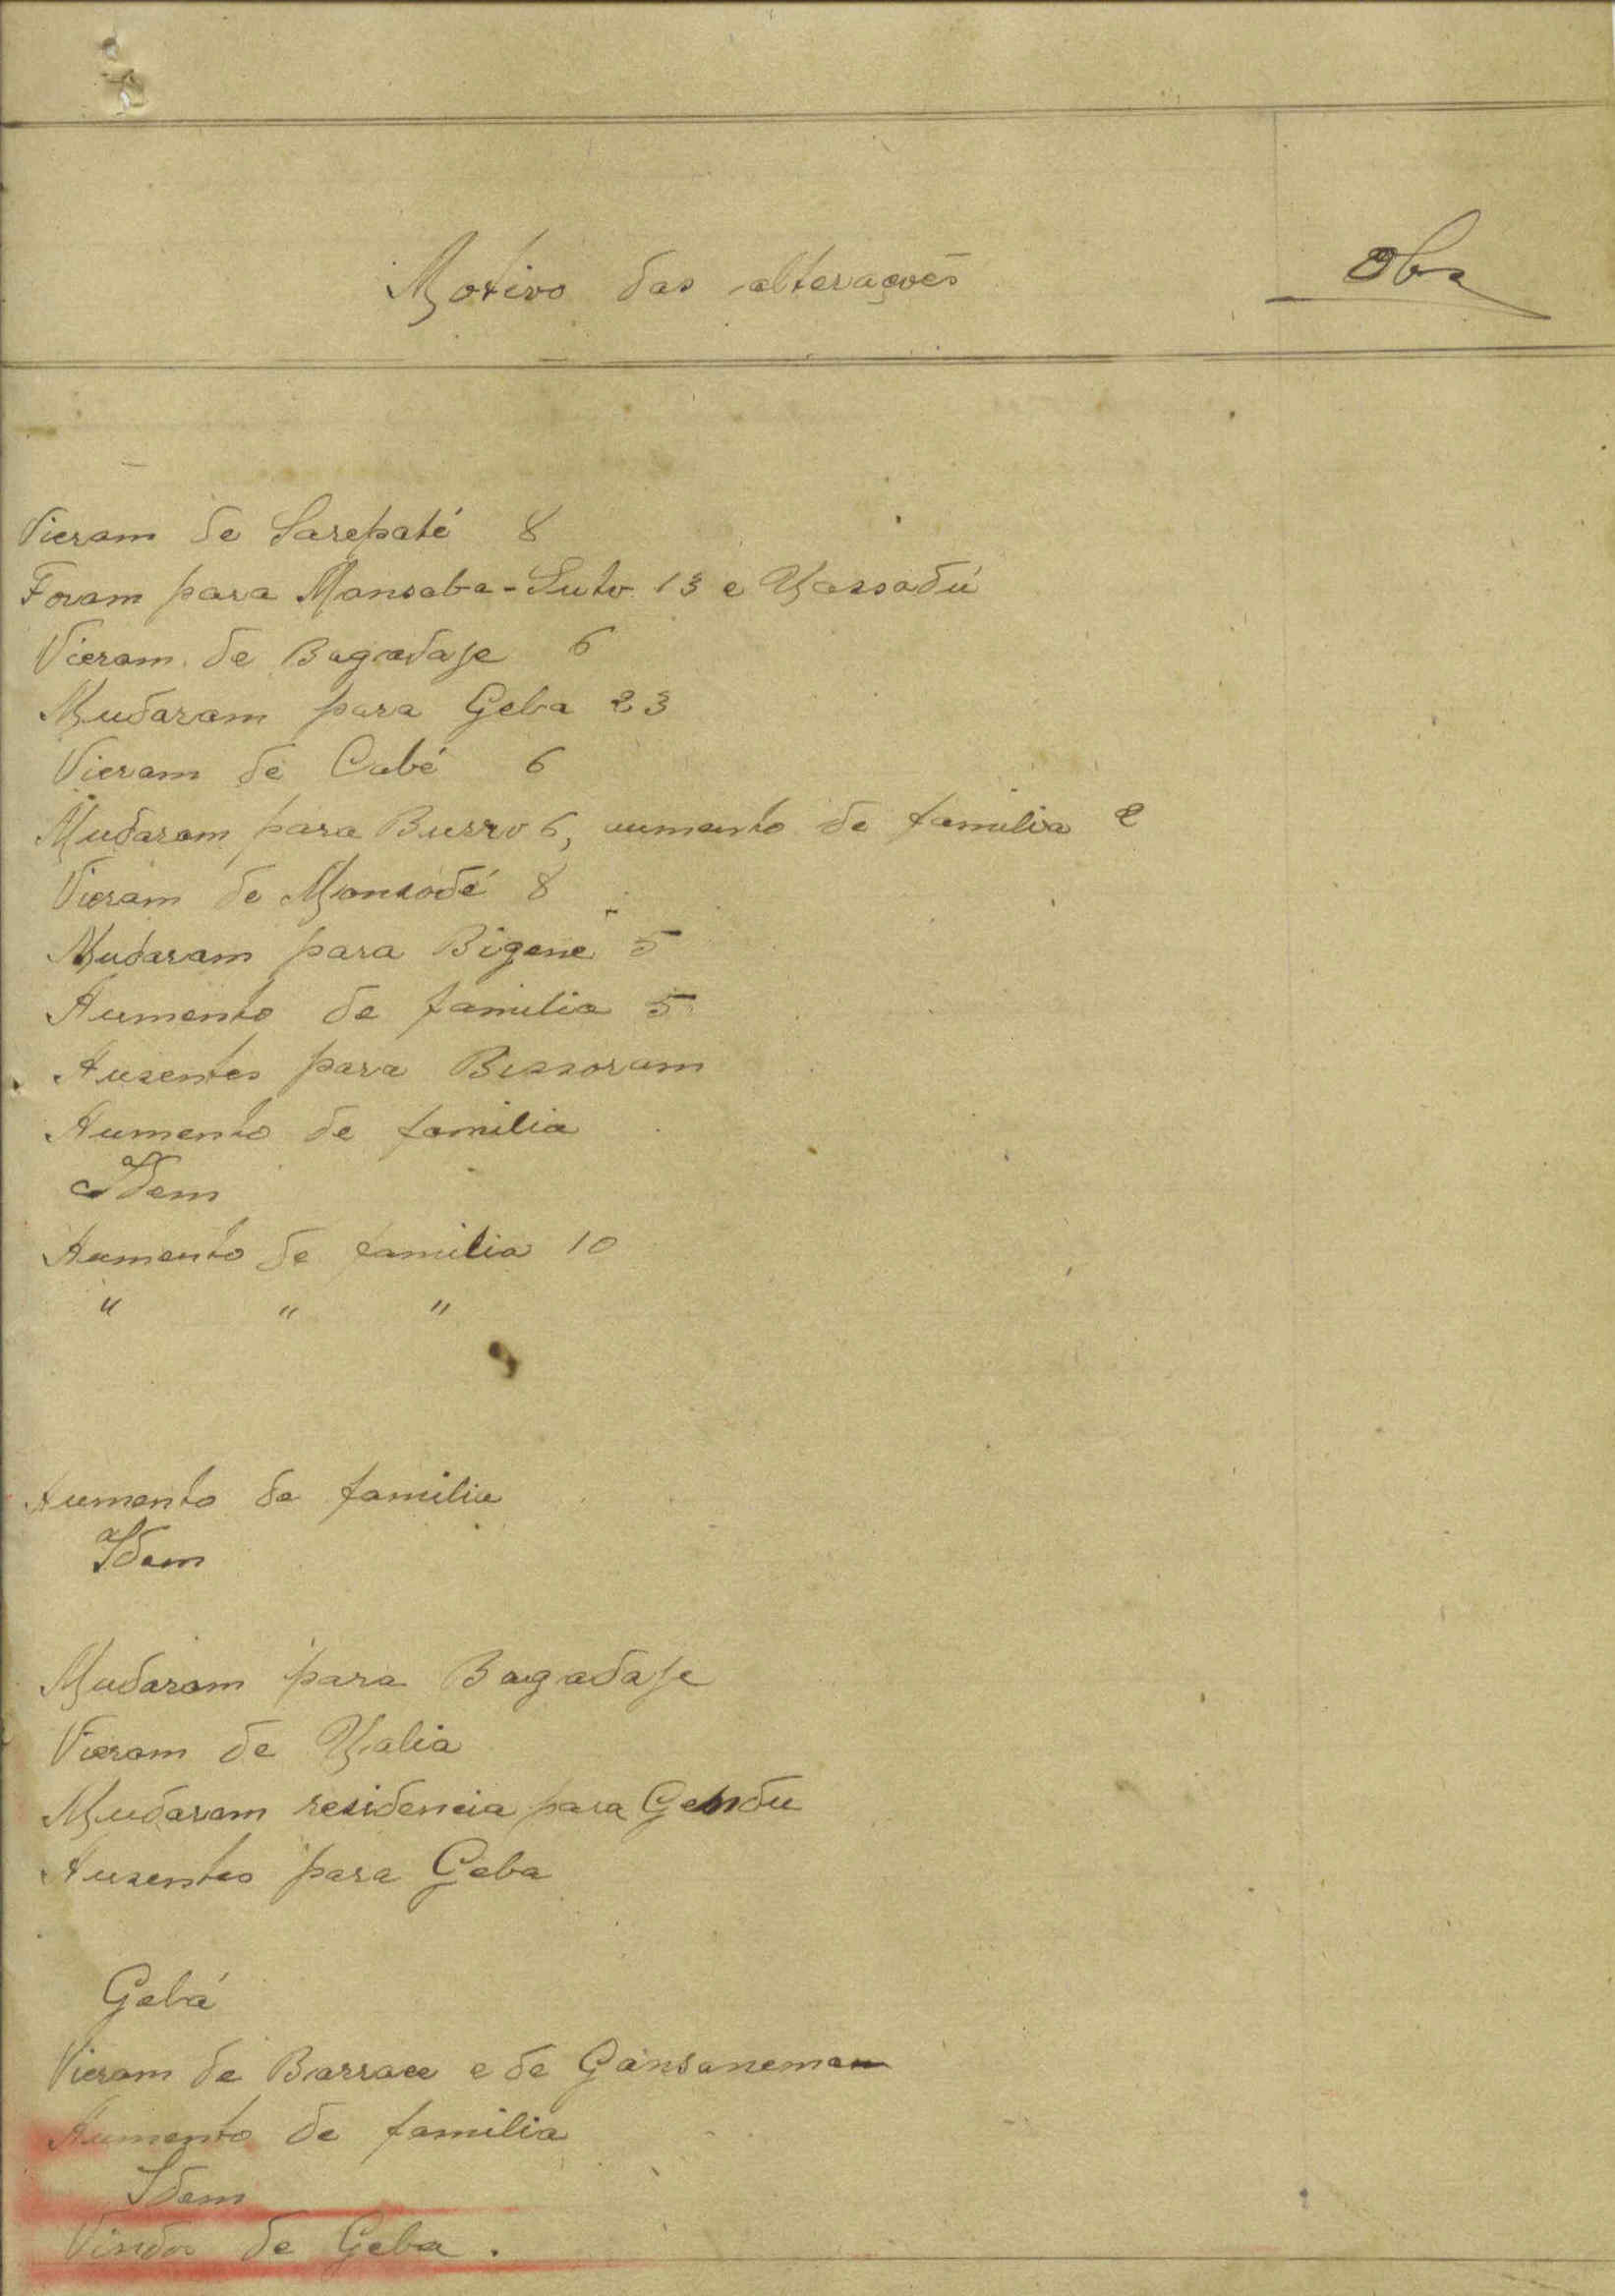 Motivo das alterações
Obs
Vieram de Sarepaté 8
Foram para Mansaba-Suto 13 e
Vieram de Bagadaje 6
Mudaram para Geba 23
Vieram de Cabé 6
Mudaram para Burro 6, aumento de familia 2
Vieram de Mansodé 8
Mudaram para Bigene 5
Aumento de familia 5
Ausentes para Bissoram
Aumento de familia
Idem
Aumento de familia 10
" " "
Aumento de familia
Idem
Mudaram para Bagadaje
Vieram de
Mudaram residencia para Gendu
Ausentes para Geba
Gebá
Vieram de e de
Aumento de familia
Idem
Vindos de Geba.